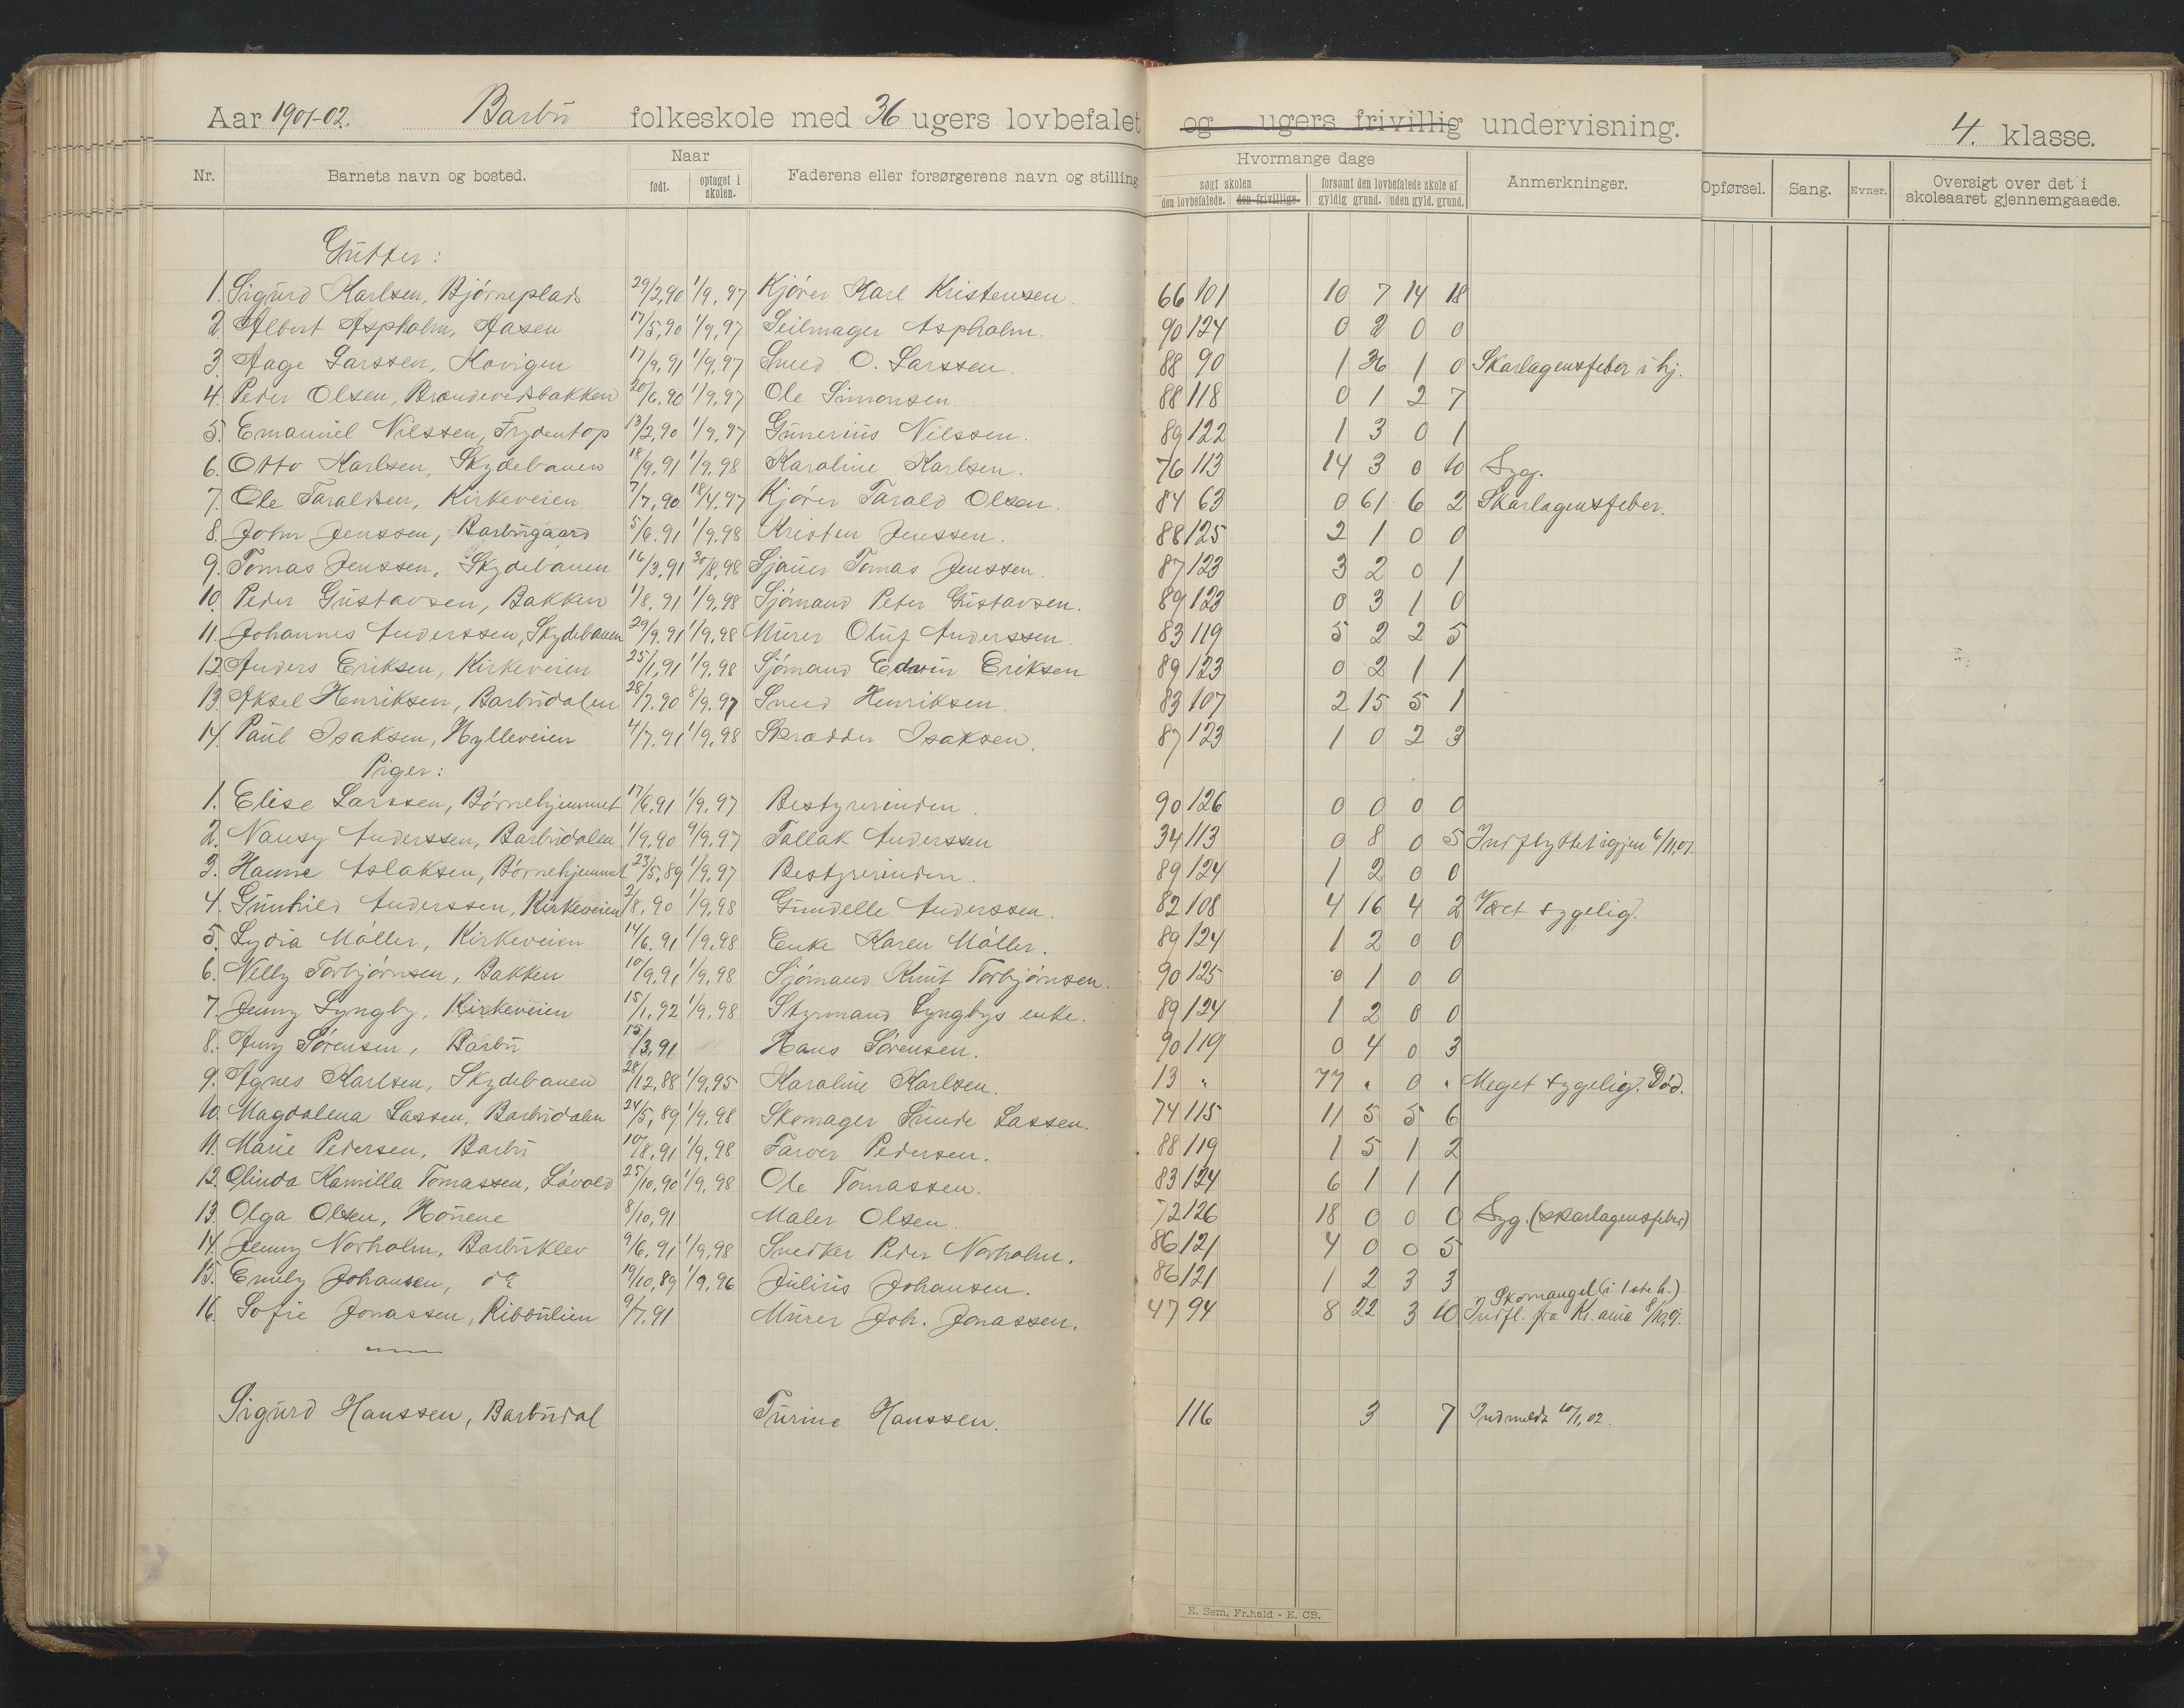 Aar 1901-02. Barbu folkeskole med 36 ugers lovbefalet og ugers frivillig undervisning. 4. klasse.
Nr. Barnets navn og bosted. Naar født. optaget i skolen. Faderens eller forsørgerens navn og stilling Hvormange dage søgt skolen den lovbefalede. den frivillige. forsømt den lovbefalede skole af gyldig grund. uden gyld. grund. Anmerkninger. Opførsel. Sang. Evner. Oversigt over det i skoleaaret gjennemgaaede.
Gutter:
1. Sigurd Karlsen, Bjørneplads 29/2,90 1/9,97 Kjører Karl Kristensen. 66 101 10 7 14 18
2. Albert Aspholm, Aasen 17/5,90 1/9,97 Seilmager Aspholm. 90 124 0 2 0 0
3. Aage Larssen, Kovigen 17/9,91 1/9,97 Smed O. Larssen. 88 90 1 36 1 0 Skarlagensfeber i hj.
4. Peder Olsen, Brændevedsbakken 20/6,90 1/9,97 Ole Simonsen 88 118 0 1 2 7
5. Emanuel Nilssen, Frydentop 13/2,90 1/9,97 Gunerius Nilssen. 89 122 1 3 0 1
6. Otto Karlsen, Skydebanen 18/9,91 1/9,98 Karoline Karlsen. 76 113 14 3 0 10 Syg.
7. Ole Taraldsen, Kirkeveien 7/7,90 18/4,97 Kjører Tarald Olsen. 84 63 0 61 6 2 Skarlagensfeber.
8. John Jenssen, Barbugaard 5/6,91 1/9,98 Kristen Jenssen. 88 125 2 1 0 0
9. Tomas Jenssen, Skydebanen 16/3,91 30/8,98 Sjauer Tomas Jenssen. 87 123 3 2 0 1
10. Peder Gustavsen, Bakken 1/8,91 1/9,98 Sjömand Peter Gustavsen. 89 123 0 3 1 0
11. Johannes Anderssen, Skydebanen 29/9,91 1/9,98 Murer Oluf Anderssen. 83 119 5 2 2 5
12. Anders Eriksen, Kirkeveien 25/1,91 1/9,98 Sjömand Edvin Eriksen 89 123 0 2 1 1
13. Aksel Henriksen, Barbudalen 28/7,90 8/9,97 Smed Henriksen. 83 107 2 15 5 1
14. Paul Isaksen, Hylleveien 4/7,91 1/9,98 Skrædder Isaksen. 87 123 1 0 2 3
Piger:
1. Elise Larssen, Börnehjemmet 17/6,91 1/9,97 Bestyrerinden 90 126 0 0 0 0
2. Nansy Anderssen, Barbudalen 1/9,90 9/9,97 Tallak Anderssen 34 113 0 8 0 5 Indflyttet igjen 6/11,01.
3. Hanne Aslaksen, Börnehjemmet 23/5,89 1/9,97 Bestyrerinden. 89 124 1 2 0 0
4. Gunhild Anderssen, Kirkeveien 2/8,90 1/9,98 Gundelle Anderssen. 82 108 4 16 4 2 Været sygelig.
5. Lydia Möller, Kirkeveien 14/6,91 1/9,98 Enke Karen Möller. 89 124 1 2 0 0
6. Nelly Torbjörnsen, Bakken 10/9,91 1/9,98 Sjömand Knut Torbjörnsen. 90 125 0 1 0 0
7. Jenny Lyngby, Kirkeveien 15/1,92 1/9,98 Styrmand Lyngbys enke. 89 124 1 2 0 0
8. Amy Sörensen, Barbu 15/3,91 Hans Sörensen. 90 119 0 4 0 3
9. Agnes Karlsen, Skydebanen 28/12,88 1/9,95 Karoline Karlsen. 13 " 77 " 0 " Meget sygelig. Död.
10. Magdalena Lassen, Barbudalen 24/5,89 1/9,98 Skomager Sunde Lassen. 74 115 11 5 5 6
11. Marie Pedersen, Barbu 10/8,91 1/9,98 Farver Pedersen. 88 119 1 5 1 2
12. Olinda Kamilla Tomassen, Lövold 25/10,90 1/9,98 Ole Tomassen. 83 124 6 1 1 1
13. Olga Olsen, 8/10,91 Maler Olsen. 72 126 18 0 0 0 Syg. (skarlagensfeber)
14. Jenny Norholm, Barbuklev 9/6,91 1/9,98 Snedker Peder Norholm. 86 121 4 0 0 5
15. Emily Johansen, do 19/10,89 1/9,96 Julius Johansen. 86 121 1 2 3 3 Skomangel (i 1ste h.)
16. Sofie Jonassen, Ribbulien 9/7,91 Murer Joh. Jonassen. 47 94 8 22 3 10 Indfl. fra Kr.ania 8/10,01.
Sigurd Hanssen, Barbudal Turine Hanssen. 116 3 7 Indmeldt 10/1,02.
E. Sem, Fr.hald - E. CB.